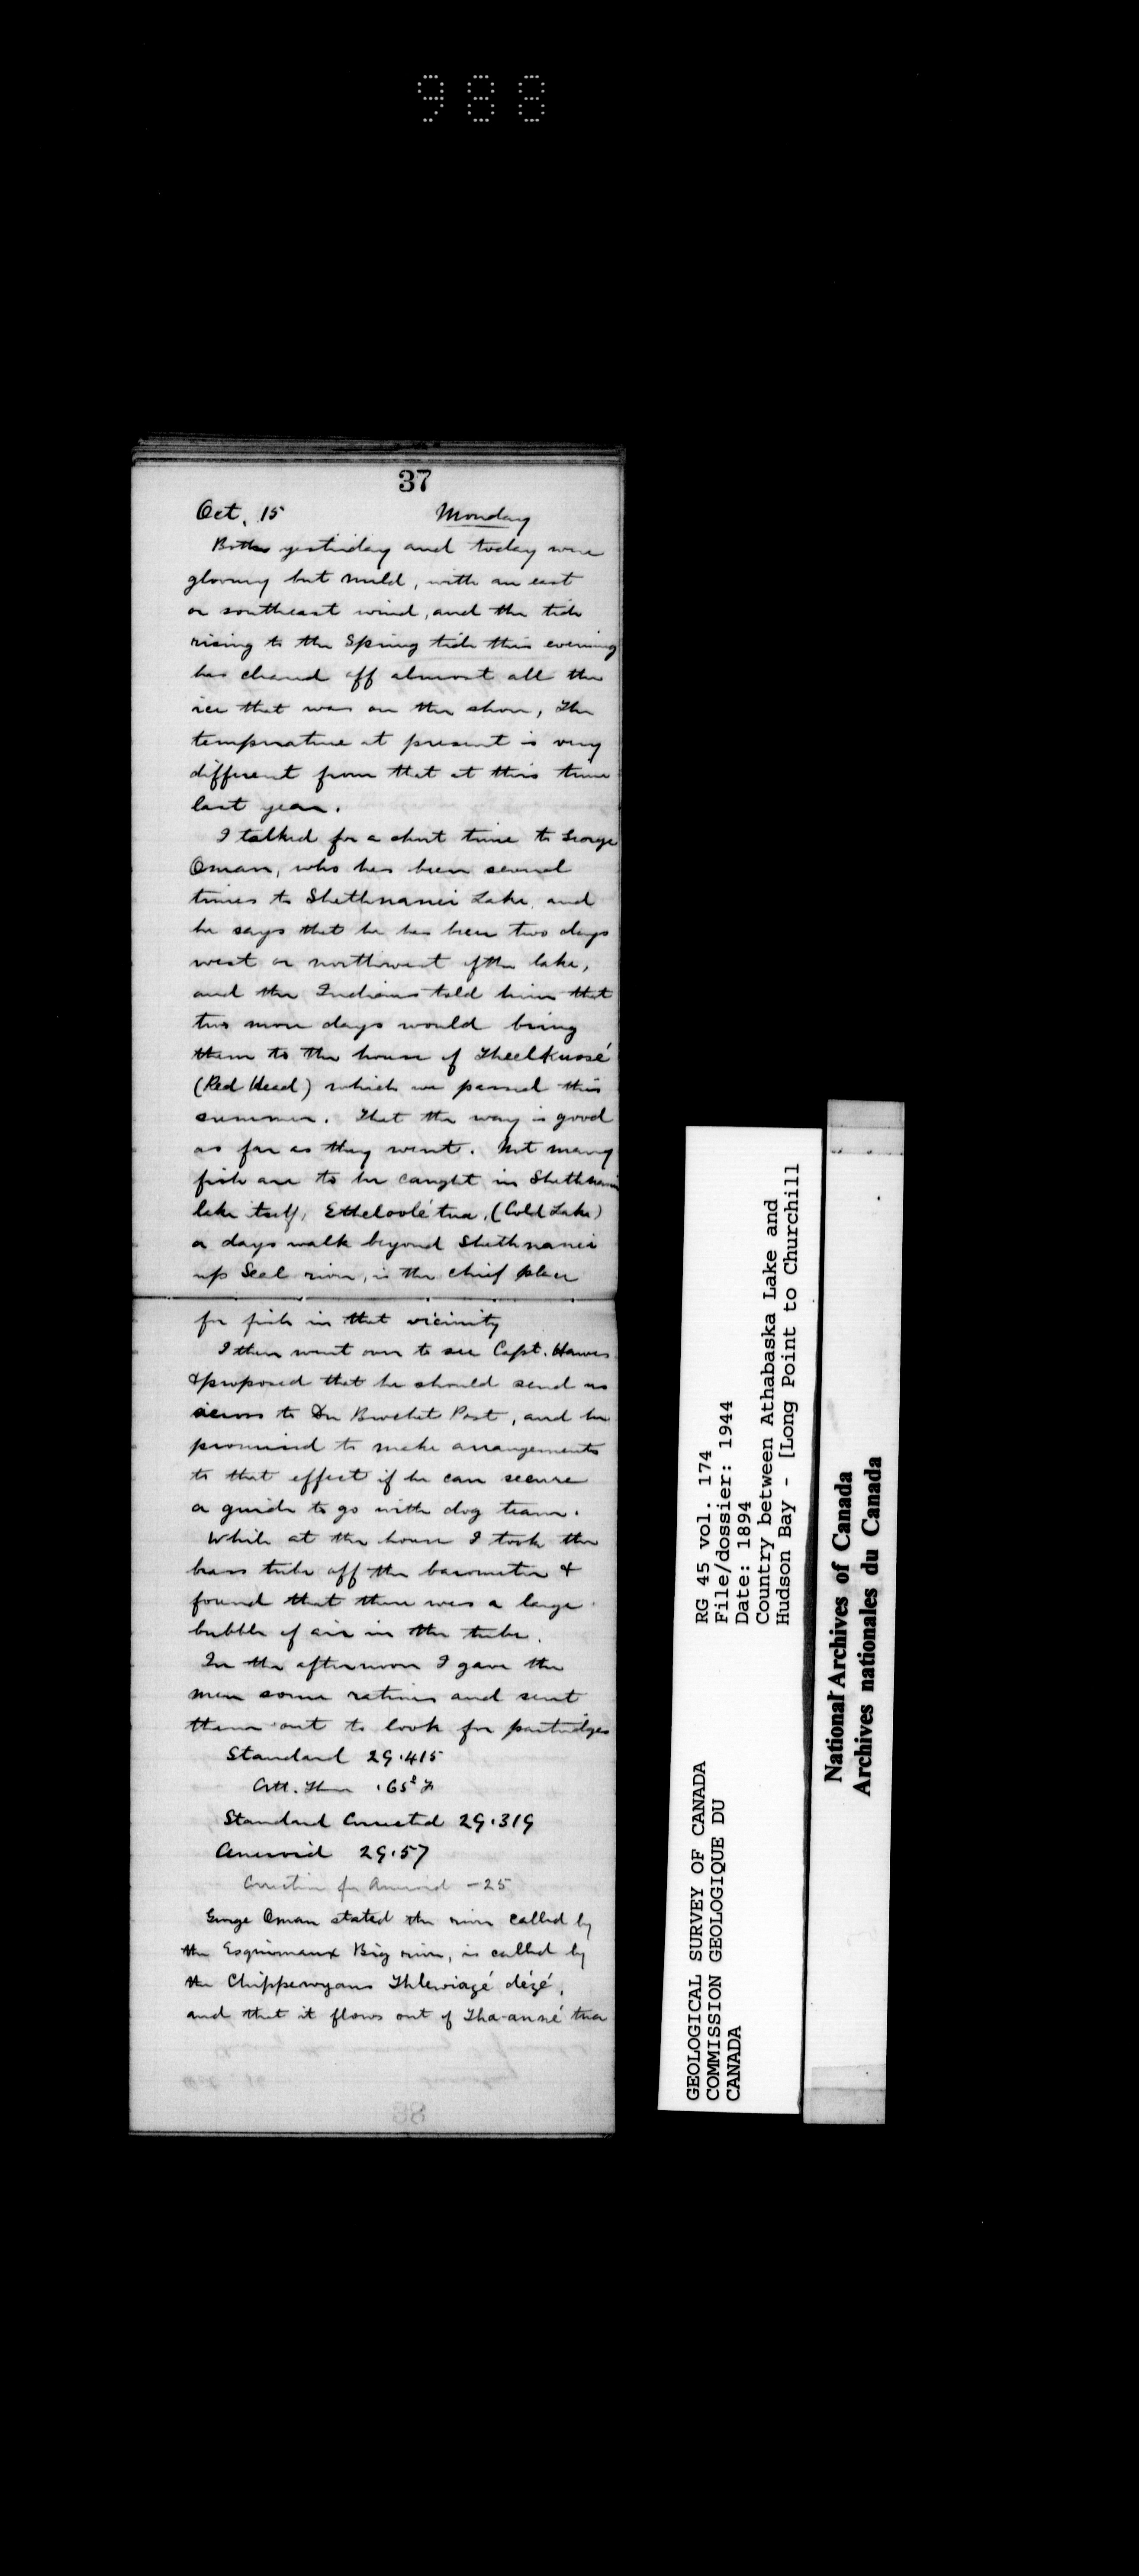 988
37
Oct. 15 Monday
Both yesterday and today were
gloomy but mild, with an east
or southeast wind, and the tide
rising to the Spring tide this evening
has cleared off almost all the
ice that was on the shore, The
temperature at present is very
different from that at this time
last year.
I talked for a short time to George
Oman, who has been several
times to Shethnanei Lake, and
he says that he has been two days
west or northwest of the lake,
and the Indians told him that
two more days would bring
them to the house of Theelkussé
(Red Head) which we passed this
summer. That the way is good
as far as they went. Not many
fish are to be caught in Shethnanei
lake itself, Etheloolé tua, (Cold Lake)
a days walk beyond Shethnanei
up Seal river, is the chief place
for fish in that vicinity
I then went over to see Capt. Hawes
& proposed that he should send us
across to Du Brochet Post, and he
promised to make arrangements
to that effect if he can secure
a guide to go with dog team.
While at the house I took the
brass tube off the barometer &
found that there was a large
bubble of air in the tube.
In the afternoon I gave the
men some rations and sent
them out to look for partridges
Standard 29.415
Att. Ther .65° F
Standard Corrected 29.319
Aneroid 29.57
Correction for Aneroid -25
George Oman stated the river called by
the Esquimaux Big river, is called by
the Chippewyans Thlewiazé dézé,
and that it flows out of Tha-anné tua
38
GEOLOGICAL SURVEY OF CANADA
COMMISSION GEOLOGIQUE DU
CANADA
RG 45 vol. 174
File/dossier: 1944
Date: 1894
Country between Athabaska Lake and
Hudson Bay - [Long Point to Churchill
National Archives of Canada
Archives nationales du Canada